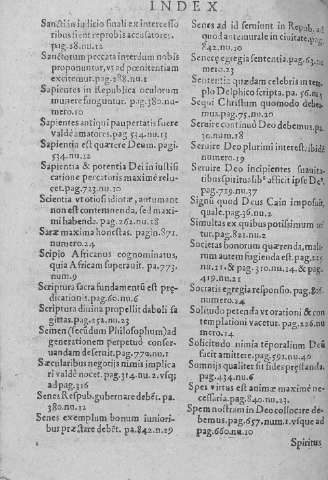 INDEX
Sancti in iudicio finali ex intercesso
ribus fient reprobis accusatores.
pag.28.nu.12
Sanctorum peccata interdum nobis
proponuntur, vt ad pœnitentiam
excitemur. pag.288.nu.1
Sapientes in Republica oculorum
munere funguntur. pag.380.nu-
mero.10
Sapientes antiqui paupertatis fuere
valdè amatores. pag 534.nu.13
Sapientia est quærere Deum. pagi.
534.nu.12
Sapientia & potentia Dei in iustifi
catione peccatoris maximè relu-
cet. pag.723.nu.10
Scientia vt otiosi idiotæ, autumant
non est contemnenda, sed maxi-
mi habenda. pag.262.nu.28
Saræ maxima honestas. pagin.871.
numero.24
Scipio Africanus cognominatus,
quia Africam superauit. pa.773.
num.9
Scriptura sacra fundamentū est præ
dicationis. pag.60.nu.6
Scriptura diuina propellit daboli sa
gittas. pag.152.nu.23
Semen (secūdum Philosophum) ad
generationem perpetuò conser-
uandam deseruit. pag.770.nu.1
Sæcularibus negotijs nimis implica
ri valdè nocet. pag.314.nu.2.vsq;
ad pag.316
Senes Respub. gubernare debēt. pa.
380.nu.12
Senes exemplum bonum iuniori-
bus præstare debēt. pa.842.n.29
Senes ad id seruiunt in Repub. ad
quod ante murale in ciuitate. pag.
842.nu.30
Senecę egregia sententia. pag.63.nu
mero.23
Sententia quædam celebris in tem-
plo Delphico scripta. pa.56.nu.5
Sequi Christum quomodo debe-
mus. pag.75.nu.20
Seruire continuò Deo debemus. pa.
30.num.18
Seruire Deo plurimi interest. ibidē
numero.19
Seruire Deo incipientes suauita-
tibus spiritus
pag.719.nu.37
Signū quod Deus Cain imposuit,
quale. pag.36.nu.2
Simultas ex quibus potissimum ori
tur. pag.821.nu.2
Societas bonorum quærenda, malo
rum autem fugienda est. pag.225
nu.21. & pag.310.nu.14. & pag.
419.nu.21
Socratis egregia responsio. pag.826.
numero.24
Solitudo petenda vt orationi & con
templationi vacetur. pag.226.nu
mero.14
Solicitudo nimia tēporalium Deū
facit amittere. pag.591.nu.40
Somnijs qualiter sit fides prestanda.
pag.434.nu.6
Spes virtus est animæ maximè ne-
cessaria. pag.840.nu.13.
Spem nostram in Deo collocare de-
bemus. pag.657.num.1.vsque ad
pag.660.nu.10
Spiritus